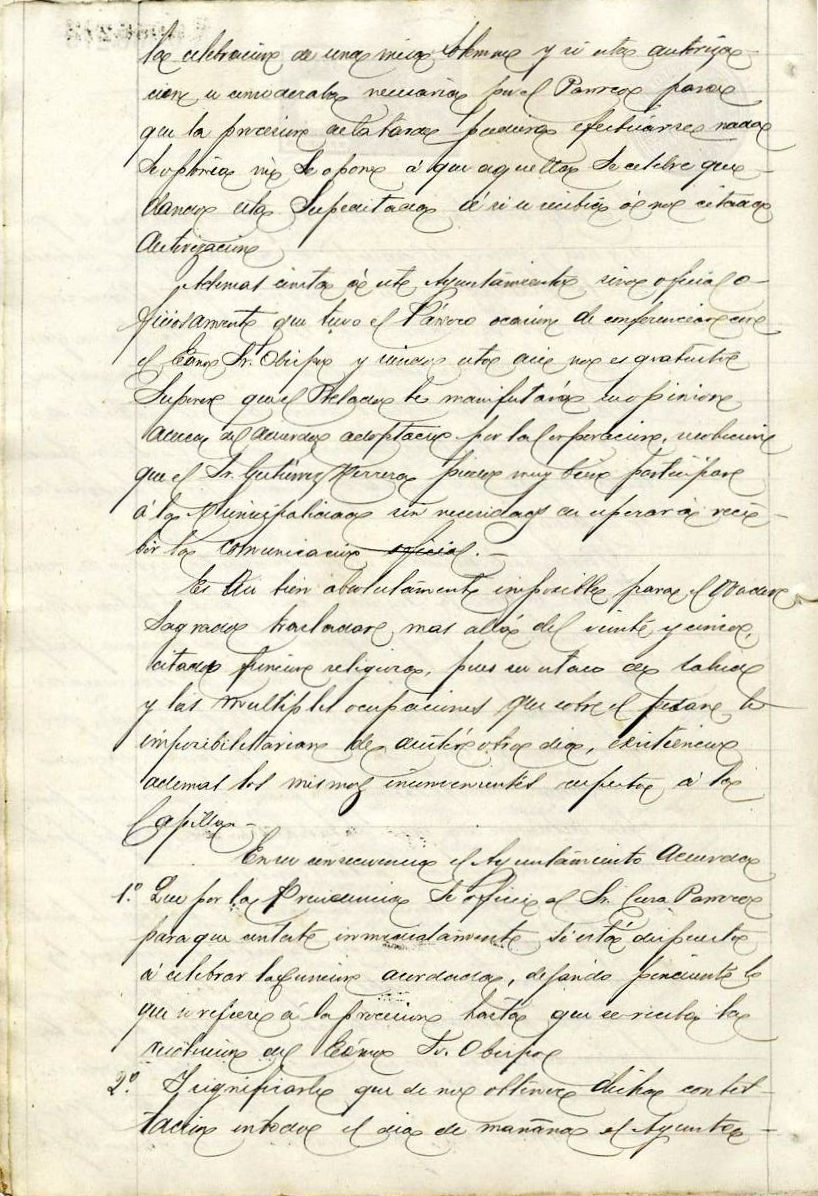 la celebracion de una misa solemne y si esta autoriza-
cion se consideraba necesaria por el Parroco para
que la procesion de la tarde pudiera efectuarse nada
se oponia ni se opone á que aquella se celebre que-
dando esta supeditada á si se recibia ó no citada
autorizacion
Ademas consta á este Ayuntamiento, sino oficial o-
ficiosamente que tuvo el Párroco ocasion de conferenciar con
el Excmo Sr. Obispo y siendo esto asi no es gratuito
suponer que el Prelado le manifestaria su opinion
acerca del acuerdo adoptado por la Corporacion, resolucion
que el Sr. Gutierrez Herrera pudo muy bien participar
á la Municipalidad sin necesidad de esperar á reci-
bir la comunicacion oficial.-
Es tambien absolutamente imposible para el Orador
Sagrado trasladar mas allá del veinte y cinco,
citada funcion religiosa, pues su estado de salud
y las multiples ocupaciones que sobre el pesan le
imposibilitarian de asistir otro dia, existiendo
ademas los mismos inconvenientes respecto á la
Capilla.-
En su consecuencia el Ayuntamiento acuerda
1.º Que por la Presidencia se oficie al Sr. Cura Parroco
para que conteste inmediatamente si está dispuesto
á celebrar la funcion acordada, dejando pendiente lo
que se refiere á la procesion hasta que se reciba la
resolucion del Excmo Sr. Obispo
2.º Y significarle que de no obtener dicha contes-
tacion en todo el dia de mañana el Ayunta-